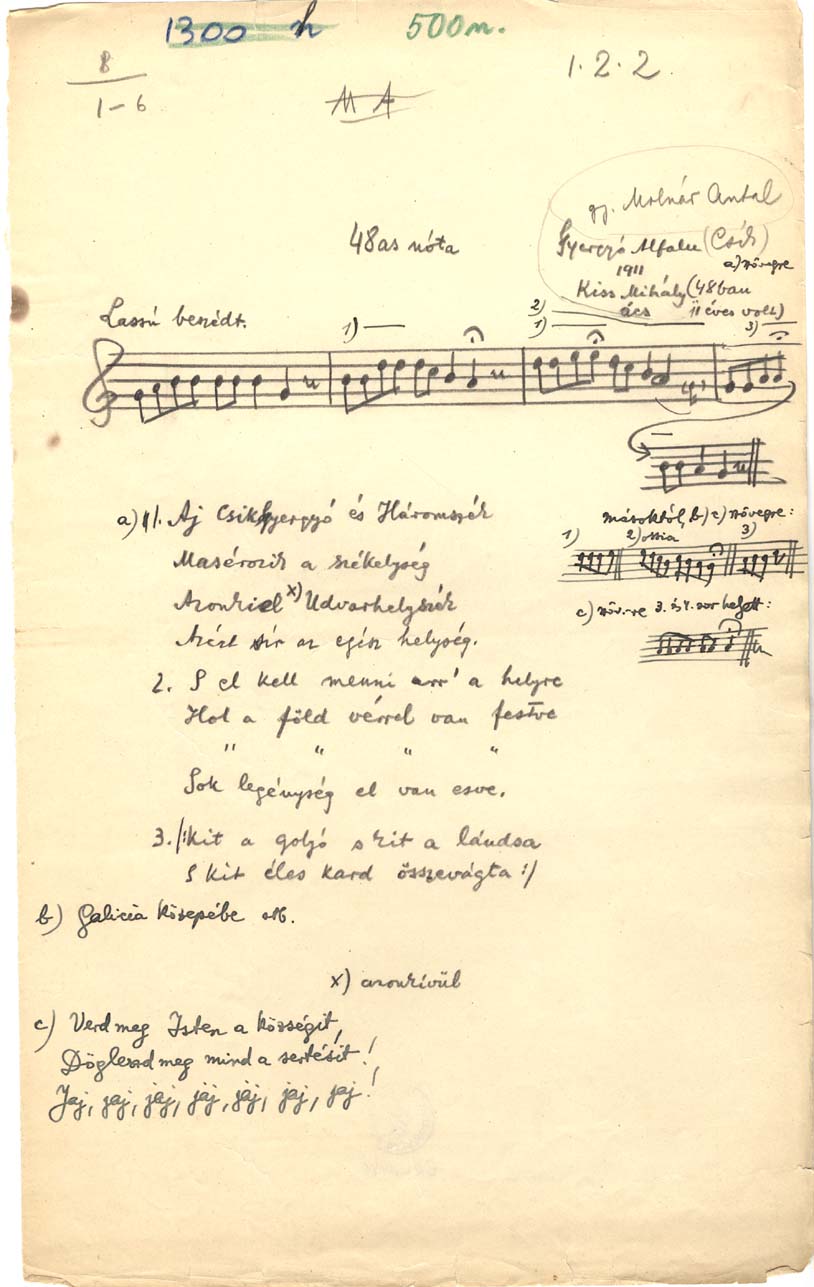 1300 h 500 m.
8
1-6
1.2.2.
M A
gy. Molnár Antal
48as nóta
Gyergyó Alfalu (Csík)
1911
a) szövegre
Kiss Mihály (48ban
ács 11 éves volt)
Lassú beszédt.
1)
2)
1)
3)
a) 1. Aj Csik Gyergyó és Háromszék
Masérozik a székelység
Azonkiel x) Udvarhelyszék
Azért sir az egész helység.
másoktól, b) c) szövegre:
1) 2) ossia 3)
c) szöv.-re 3. és 4. sor helyett:
2. S el kell menni arr' a helyre
Hol a föld vérrel van festve
" " " "
Sok legénység el van esve.
3. /: Kit a golyó s kit a lándsa
S kit éles kard összevágta :/
b) Galicia közepébe stb.
x) azonkívül
c) Verd meg Isten a községit,
Dögleszd meg mind a sertésit!
Jaj, jaj, jaj, jaj, jaj, jaj, jaj!